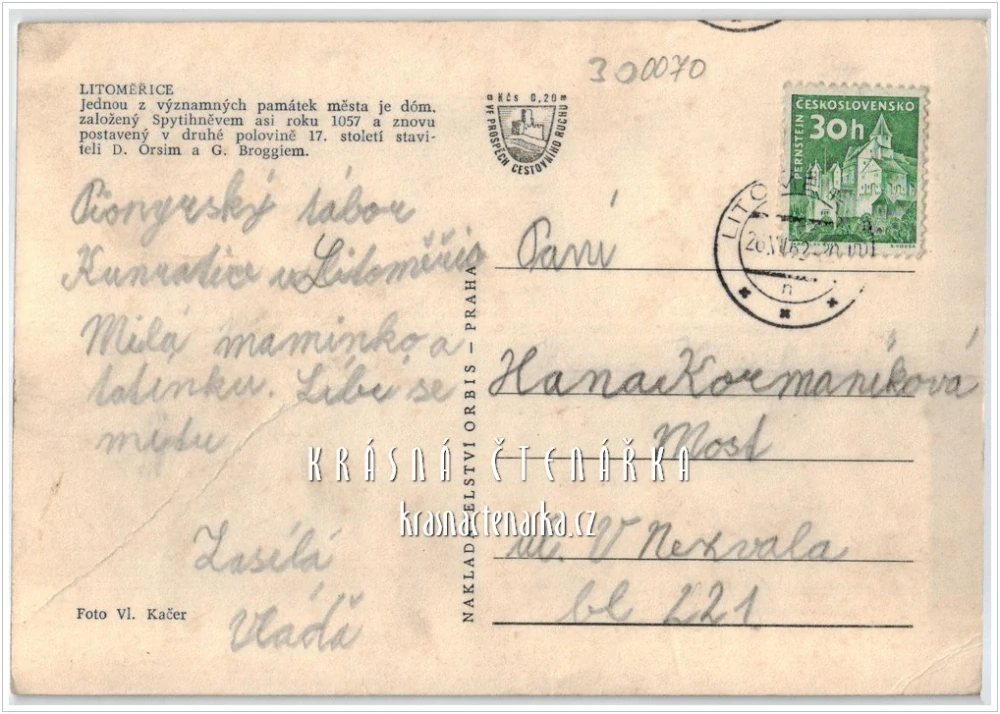 300070
LITOMĚŘICE
Jednou z významných památek města je dóm,
založený Spytihněvem asi roku 1057 a znovu
postavený v druhé polovině 17. století stavi-
teli D. Orsim a G. Broggiem.
Kčs 0,20
VE PROSPĚCH CESTOVNÍHO RUCHU
ČESKOSLOVENSKO
30h
PERNŠTEJN
LITO
Pionyrský tábor
Kunratice u Litoměřic
Milá maminko a
tatínku. Líbí se
mi tu
Zasílá
Vláďa
Foto Vl. Kačer
NAKLADATELSTVÍ ORBIS - PRAHA
Paní
Hana Kormaníková
Most
ul. V Nezvala
bl 221
KRÁSNÁ ČTENÁŘKA
krasnactenarka.cz